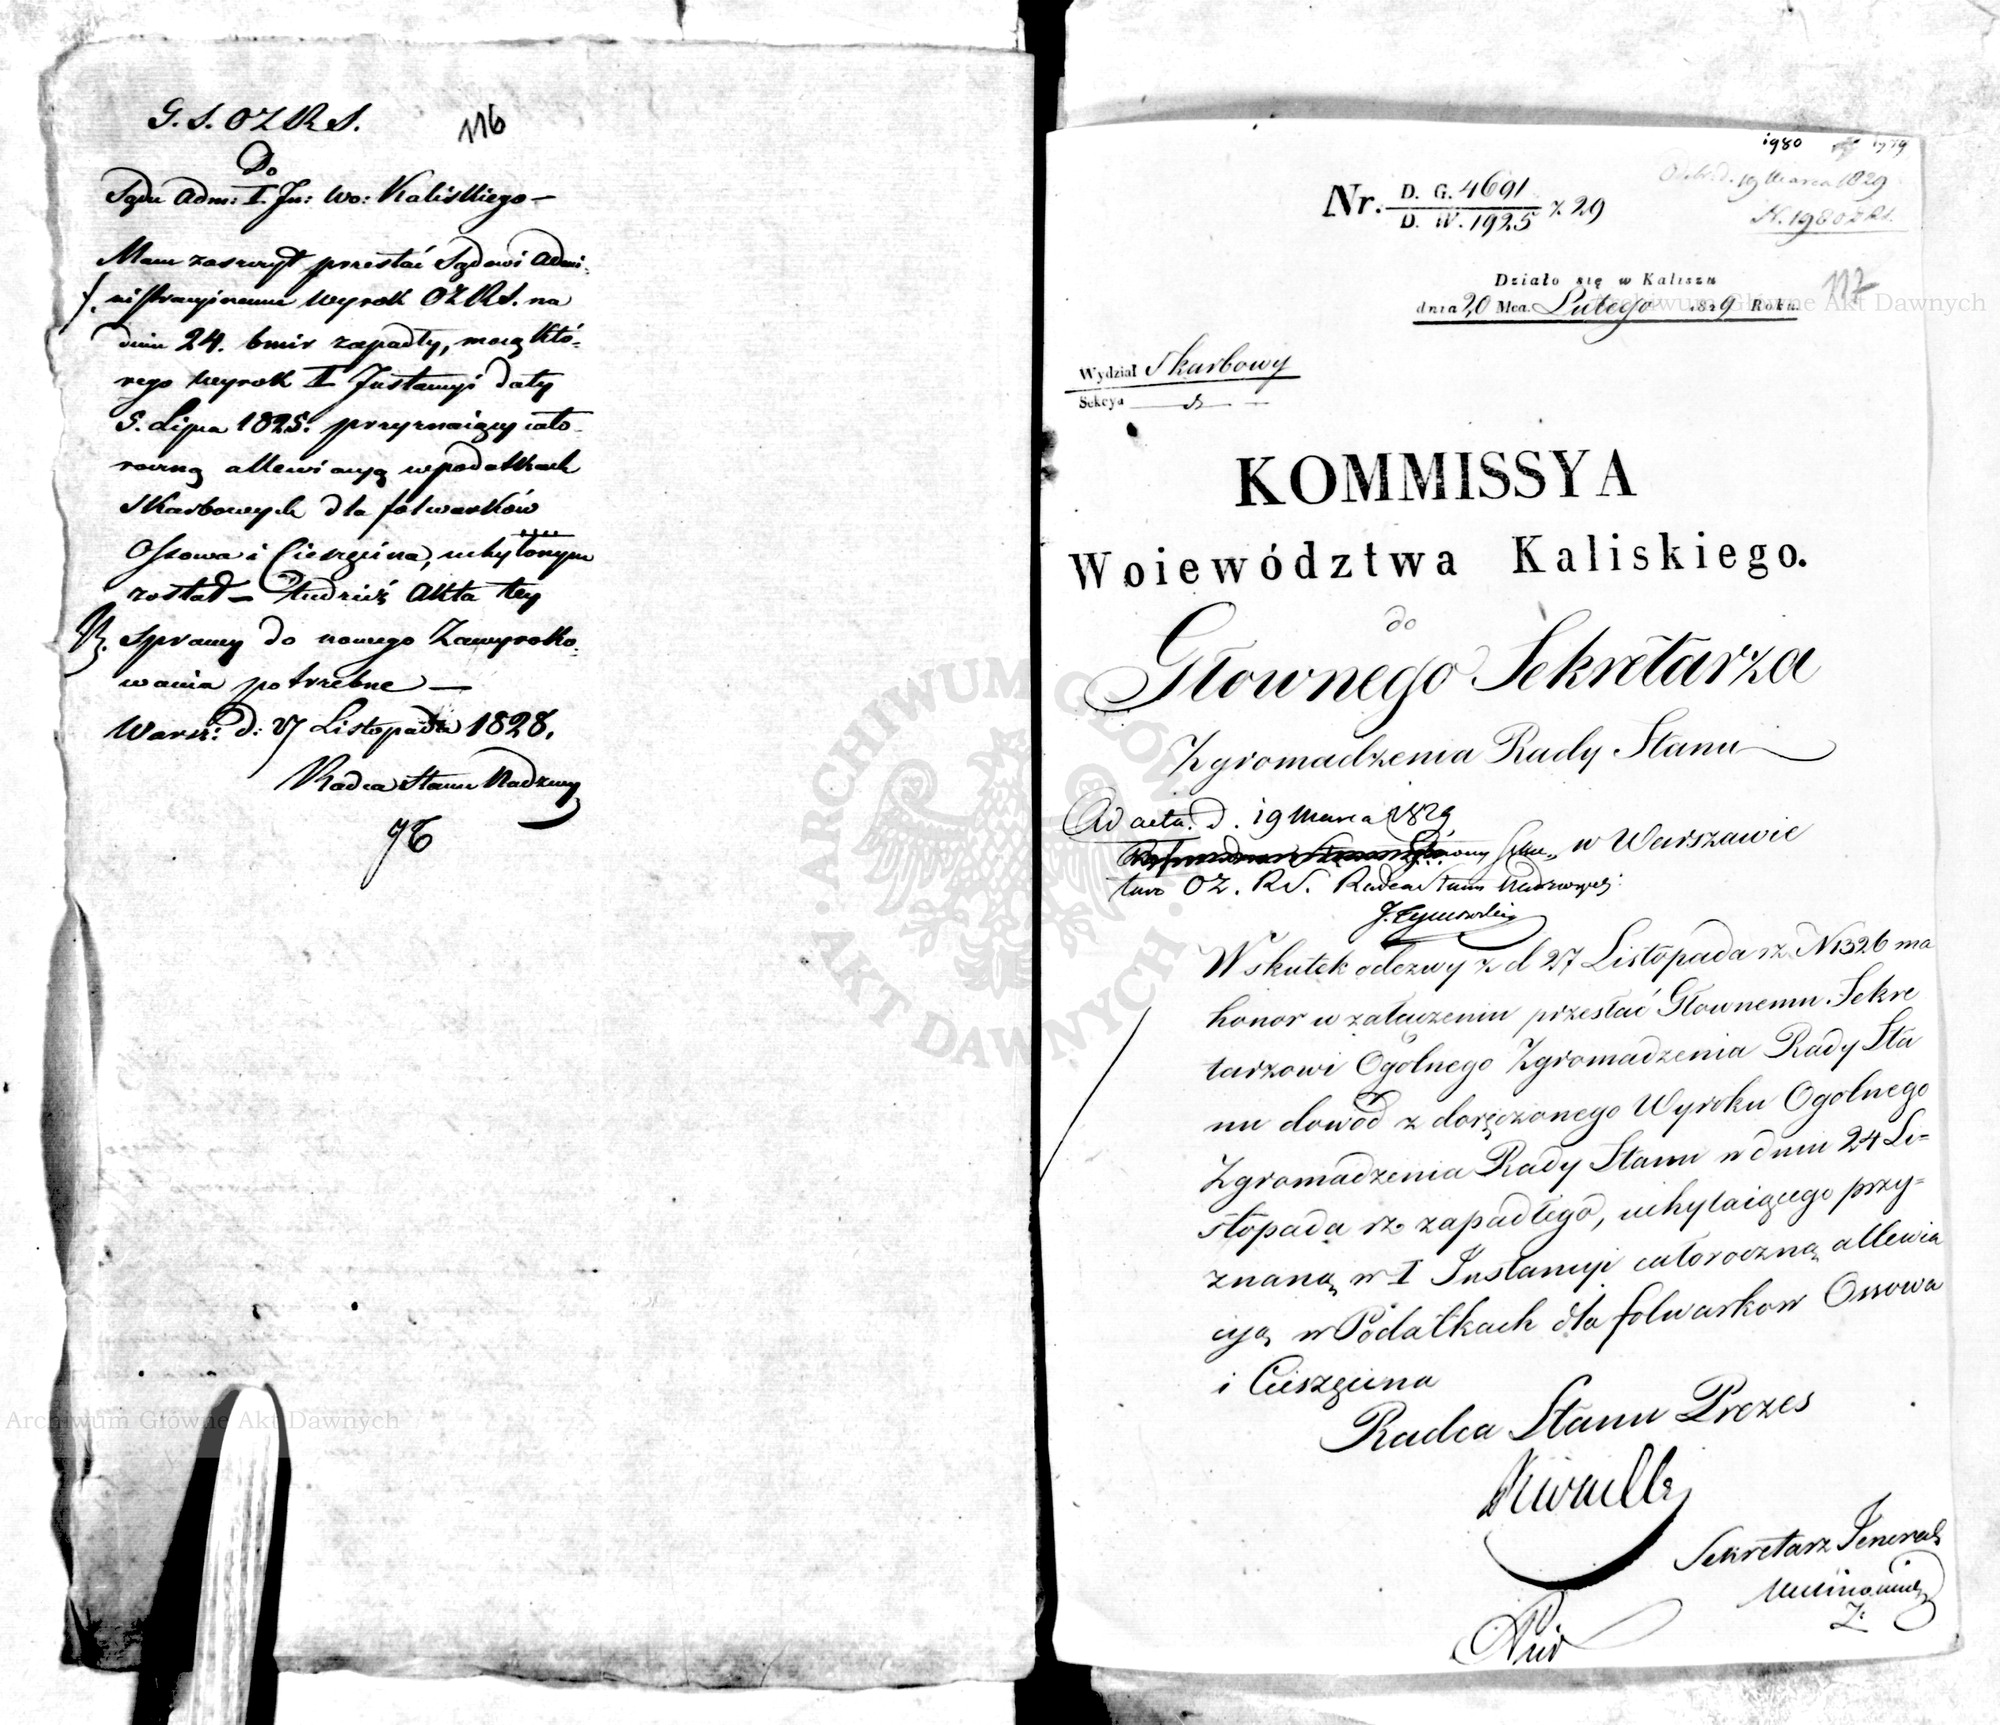 G. S. OZRS.
116
Do
Sądu Adm: I. In: Wo: Kaliskiego —
Mam zaszczyt przesłać Sądowi Admi-
nistracyinemu wyrok OZRS. na
dniu 24. bmir zapadły, mocą któ-
rego wyrok II Instancyi daty
5. Lipca 1825. przyznaiący cało-
roczną allewiacyą w podatkach
Skarbowych dla folwarków
Ossowa i Cieszęcina, uchylonym
został — tudzież Akta tey
Sprawy do nowego Zawyroko-
wania potrzebne —
Warsz: d: 27 Listopada 1828.
Radca Stanu Nadzwy
1980
1979
19 Marca 1829
N. 1980 ZRS.
Nr. D. G. 4691 / D. W. 1925 z 29
117
Działo się w Kaliszu
dnia 20 Mca. Lutego 1829 Roku.
Wydział Skarbowy
Sekcya
KOMMISSYA
Woiewództwa Kaliskiego.
do
Głownego Sekretarza
Zgromadzenia Rady Stanu
Ad acta. d. 19 Marca 1829
w Warszawie
OZ. RS. Radca Stanu Nadzwyczj:
W skutek odezwy z d 27 Listopada rz. N 1326 ma
honor w załączeniu przesłać Głownemu Sekre
tarzowi Ogólnego Zgromadzenia Rady Sta
nu dowód z doręczonego Wyroku Ogolnego
Zgromadzenia Rady Stanu w dniu 24 Li=
stopada rz. zapadłego, uchylaiącego przy=
znaną w I Instancyi całoroczną allewia
cyą w Podatkach dla folwarkow Ossowa
i Cieszęcina
Radca Stanu Prezes
Sekretarz Jeneral
Archiwum Główne Akt Dawnych
ARCHIWUM GŁÓWNE AKT DAWNYCH
Archiwum Główne Akt Dawnych